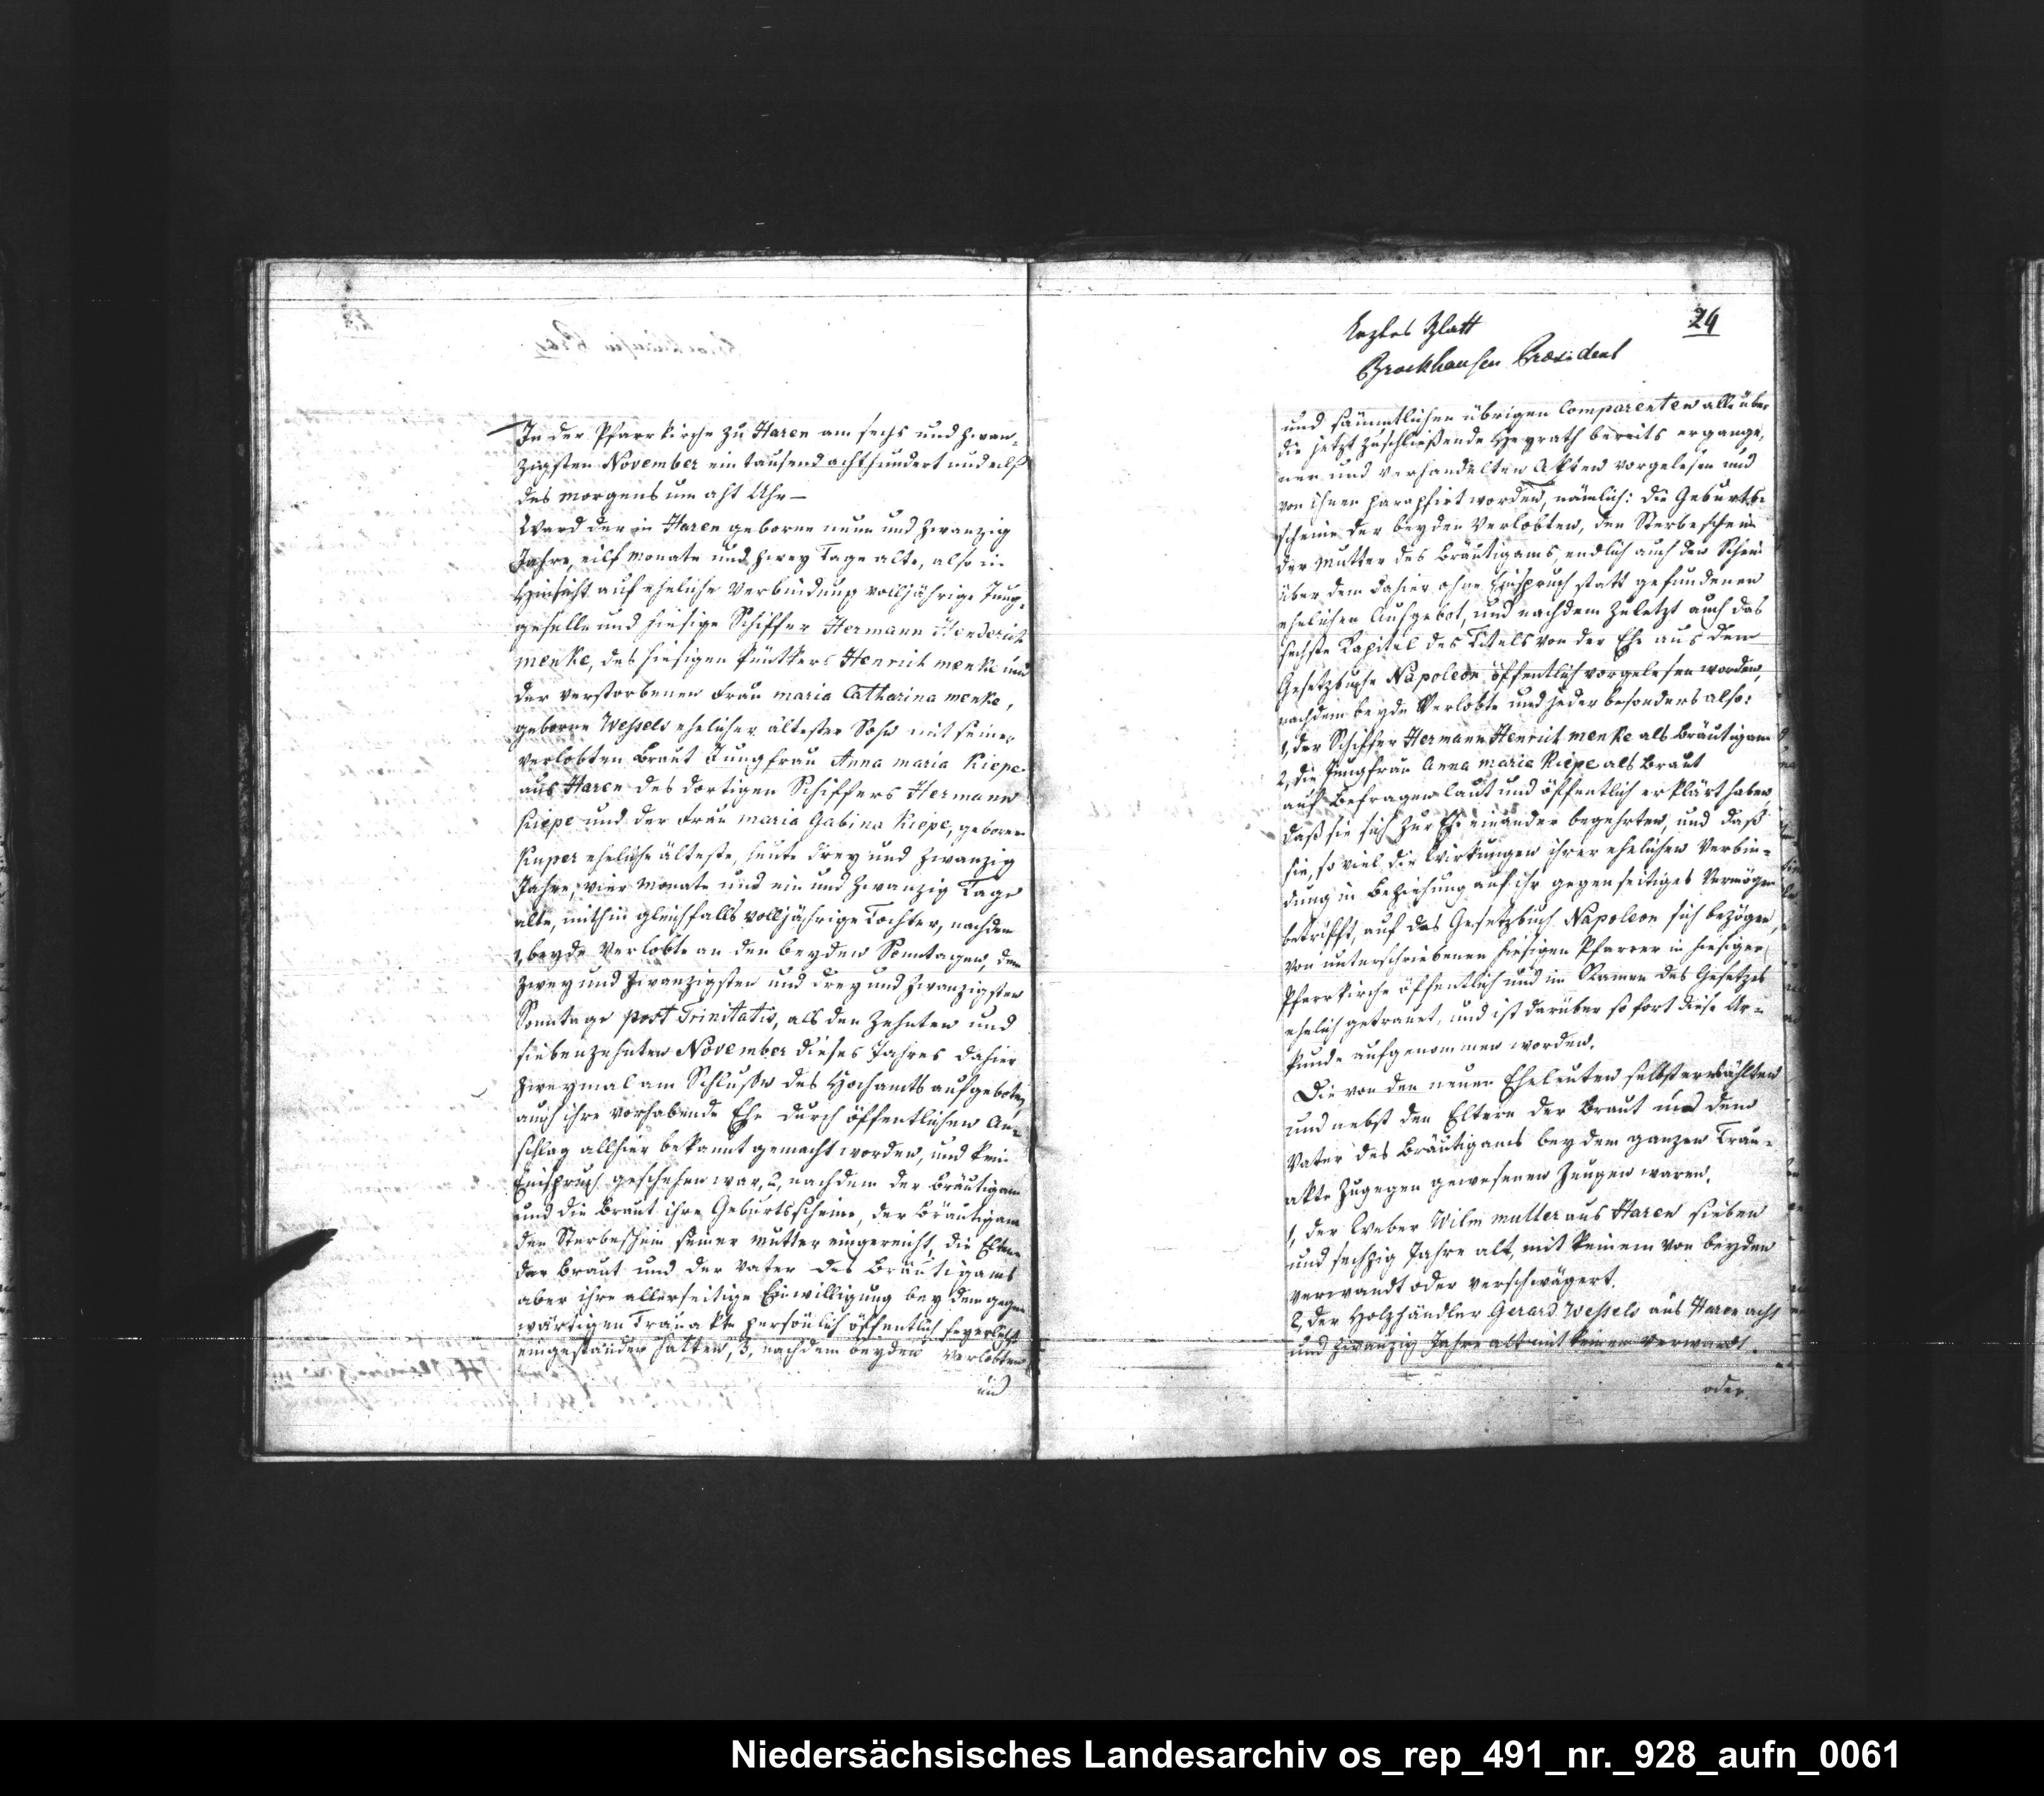 In der Pfarrkirche zu Haren am sechs und zwan-
zigsten November ein tausend achthundert und eilf
des Morgens um acht Uhr –
Ward der in Haren geborne neun und zwanzig
Jahre, eilf Monate und zwey Tage alte, also in
Hinsicht auf eheliche Verbindung volljährige Jung-
geselle und hiesige Schiffer Hermann Henderich
Menke, des hiesigen Henrich Menke und
der verstorbenen Frau Maria Catharina Menke,
geborne Wessels ehelicher ältester Sohn mit seiner
verlobten Braut Jungfrau Anna Maria Kiepe
aus Haren des dortigen Schiffers Hermann
Kiepe und der Frau Maria Gabina Kiepe, geborne
Kuper eheliche älteste, heute drey und zwanzig
Jahre, vier Monate und ein und zwanzig Tage
alte, mithin gleichfalls volljährige Tochter, nachdem
1, beyde Verlobte an den beyden Sonntagen, dem
zwey und zwanzigsten und drey und zwanzigsten
Sonntage post Trinitatis, als den zehnten und
siebenzehnten November dieses Jahres dahier
zweymal am Schlusse des Hochamts aufgeboten,
auch ihre vorhabende Ehe durch öffentlichen An-
schlag allhier bekannt gemacht worden, und kein
Einspruch geschehen war, 2, nachdem der Bräutigam
und die Braut ihre Geburtsscheine, der Bräutigam
den Sterbeschein seiner Mutter eingereicht, die Eltern
der Braut und der Vater des Bräutigams
aber ihre allerseitige Einwilligung bey dem gegen
wärtigen Trauakte persönlich öffentlich feyerlichst
eingestanden hatten, 3, nachdem beyden Verlobten
und
24
Leztes Blatt
Brockhausen Præsident
und sämmtlichen übrigen Comparenten alle über
die jetzt zuschließende Heyrath bereits ergange-
nen und verhandelten Akten vorgelesen und
von ihnen paraphirt worden, nämlich: die Geburts-
scheine der beyden Verlobten, den Sterbeschein
der Mutter des Bräutigams, endlich auch den Schein
über dem dahier ohne Einspruch statt gefundenen
ehelichen Aufgebot, und nachdem zuletzt auch das
sechste Kapitel des Titels von der Ehe aus dem
Gesetzbuche Napoleon öffentlich vorgelesen worden,
nachdem beyde Verlobte und jeder besonders also:
1, der Schiffer Hermann Henrich Menke als Bräutigam
2, die Jungfrau Anna Maria Kiepe als Braut
auf Befragen laut und öffentlich erklärt haben,
daß sie sich zur Ehe einander begehrten, und daß
sie, so viel die Wirkungen ihrer ehelichen Verbin-
dung in Beziehung auf ihr gegenseitiges Vermögen
betrifft, auf das Gesetzbuch Napoleon sich bezögen,
von unterschriebenen hiesigen Pfarrer in hiesiger
Pfarrkirche öffentlich und im Namen des Gesetzes
ehelich getrauet, und ist darüber sofort diese Ur-
kunde aufgenommen worden.
Die von den neuen Eheleuten selbst erwählten
und nebst den Eltern der Braut und dem
Vater des Bräutigams bey dem ganzen Trau-
akte zugegen gewesenen Zeugen waren,
1, der Weber Wilm Muller aus Haren sieben
und sechzig Jahre alt, mit keinem von beyden
verwandt oder verschwägert.
2, der Holzhändler Gerard Wessels aus Haren acht
und zwanzig Jahre alt mit keinem verwandt
oder
Niedersächsisches Landesarchiv os_rep_491_nr._928_aufn_0061